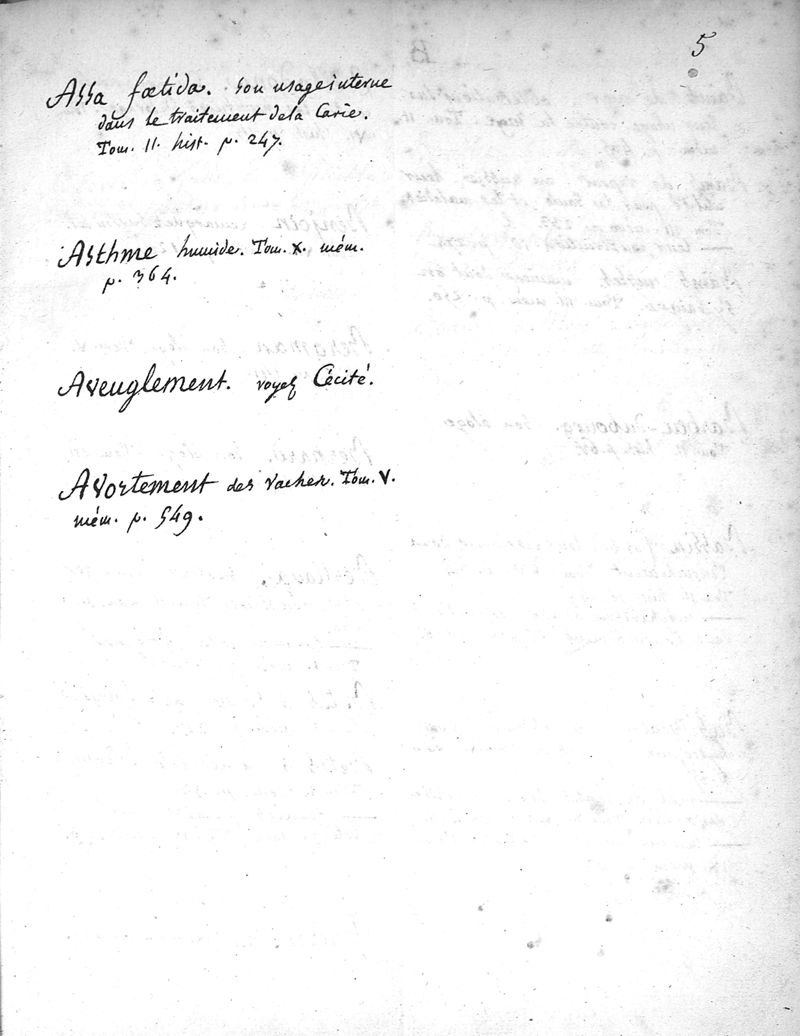 5
Assa fœtida. son usage interne
dans le traitement de la Carie.
Tom. II. hist. p. 247.
Asthme humide. Tom. X. mém.
p. 364.
Aveuglement. voyez Cécité.
Avortement des vaches. Tom. V.
mém. p. 549.